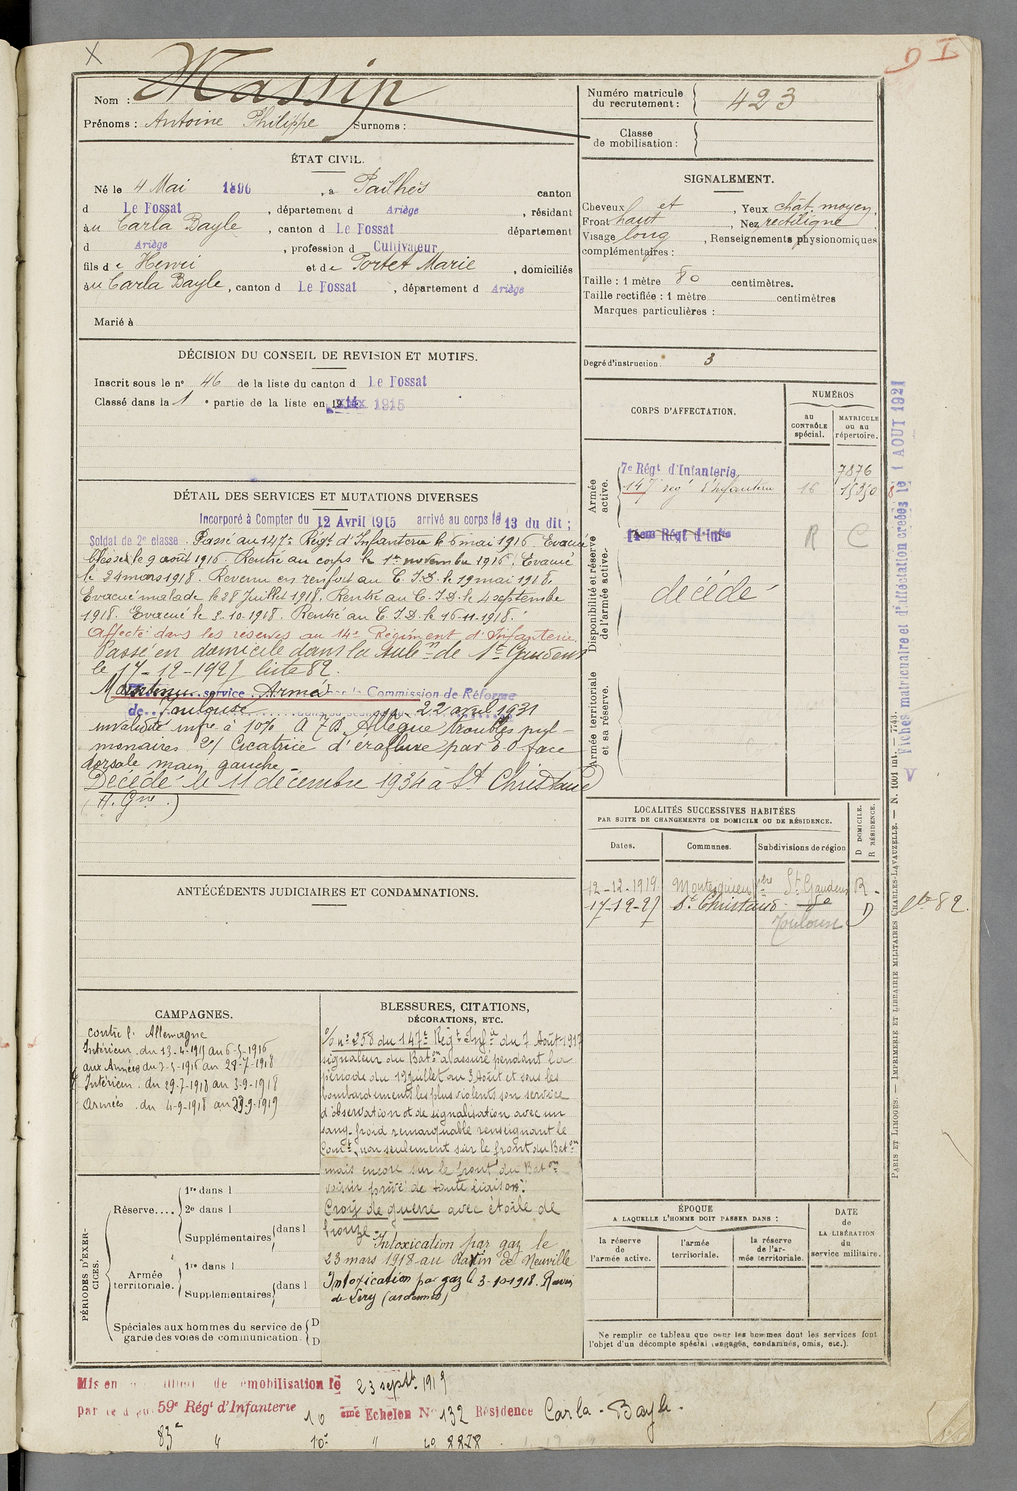 X
D I
Nom : Massip
Prénoms : Antoine Philippe Surnoms :
Numéro matricule du recrutement : 423
Classe de mobilisation :
ÉTAT CIVIL.
Né le 4 Mai 1896, à Pailhès canton
d Le Fossat, département d Ariège, résidant
au Carla Bayle, canton d Le Fossat département
d Ariège, profession d Cultivateur
fils de Henri et de Portet Marie, domiciliés
au Carla Bayle, canton d Le Fossat, département d Ariège
Marié à
SIGNALEMENT.
Cheveux et, Yeux chât. moyen,
Front haut, Nez rectiligne
Visage long, Renseignements physionomiques
complémentaires :
Taille : 1 mètre 80 centimètres.
Taille rectifiée : 1 mètre centimètres
Marques particulières :
Degré d'instruction : 3
DÉCISION DU CONSEIL DE REVISION ET MOTIFS.
Inscrit sous le n° 46 de la liste du canton d Le Fossat
Classé dans la 1 e partie de la liste en 1915
DÉTAIL DES SERVICES ET MUTATIONS DIVERSES
Incorporé à Compter du 12 Avril 1915 arrivé au corps le 13 du dit ;
Soldat de 2e classe. Passé au 147e Régt d'Infanterie le 6 mai 1916. Evacué
blessé le 9 août 1916. Rentré au corps le 1er novembre 1916. Evacué
le 24 mars 1918. Revenu en renfort au C.I.D. le 19 mai 1918.
Evacué malade le 28 Juillet 1918. Rentré au C.I.D. le 4 septembre
1918. Evacué le 3-10-1918. Rentré au C.I.D. le 16-11-1918.
Affecté dans les réserves au 14e Régiment d'Infanterie.
Passé en domicile dans la Subon de St Gaudens
le 17-12-1927 liste 82.
Maintenu service Armé par la Commission de Réforme
de Toulouse 22 avril 1931
invalidité infre à 10% Allègue troubles pul-
monaires 2/ Cicatrice d'éraflure par E O face
dorsale main gauche
Décédé le 11 décembre 1934 à St Christaud
(H. Gne.)
CORPS D'AFFECTATION.
NUMÉROS
au CONTRÔLE spécial.
MATRICULE ou au répertoire.
Armée active.
7e Régt d'Infanterie 7876
147e régt d'Infanterie 16
Disponibilité et réserve de l'armée active.
14eme Régt d'Infie R C
décédé
Armée territoriale et sa réserve.
Fiches matriculaire et d'affectation créées le 1 AOUT 1921
LOCALITÉS SUCCESSIVES HABITÉES
PAR SUITE DE CHANGEMENTS DE DOMICILE OU DE RÉSIDENCE.
Dates. Communes. Subdivisions de région D DOMICILE. R RÉSIDENCE.
12-12-1919 Montesquieu St Gaudens R
17-12-27 St Christaud do D lte 82
Toulouse
ANTÉCÉDENTS JUDICIAIRES ET CONDAMNATIONS.
CAMPAGNES.
contre l' Allemagne
Intérieur du 13-4-1915 au 6-5-1916
aux Armées du 7-5-1916 au 28-7-1918
Intérieur du 29-7-1918 au 3-9-1918
Armées du 4-9-1918 au 23-9-1919
BLESSURES, CITATIONS,
DÉCORATIONS, ETC.
n° 258 du 147e Régt Infie du 7 Août 1917
signaleur du Baton a assuré pendant la
période du 19 juillet au 3 Août et sous les
bombardements les plus violents son service
d'observation et de signalisation avec un
sang-froid remarquable renseignant le
Comdt non seulement sur le front du Baton
mais encore sur le front du Baton
voisin privé de toute liaison.
Croix de guerre avec étoile de
bronze.
Intoxication par gaz le
23 mars 1918 au Ravin de Neuville
Intoxication par gaz le 3-10-1918. Ravin
de Sery (ardennes)
PÉRIODES D'EXERCICES.
Réserve....
1re dans l
2e dans l
Supplémentaires (dans l
Armée territoriale.
1re dans l
Supplémentaires (dans l
Spéciales aux hommes du service de garde des voies de communication D D
ÉPOQUE
A LAQUELLE L'HOMME DOIT PASSER DANS :
la réserve de l'armée active.
l'armée territoriale.
la réserve de l'armée territoriale.
DATE de LA LIBÉRATION du service militaire.
Ne remplir ce tableau que pour les hommes dont les services font
l'objet d'un décompte spécial (engagés, condamnés, omis, etc.).
PARIS ET LIMOGES. — IMPRIMERIE ET LIBRAIRIE MILITAIRES CHARLES-LAVAUZELLE. — N. 1001 int. — 7743.
Mis en de démobilisation le 23 septb 1919
par le 59e Régt d'Infanterie 10 ème Echelon N° 132 Résidence Carla-Bayle.
83e " 10e " no 8828